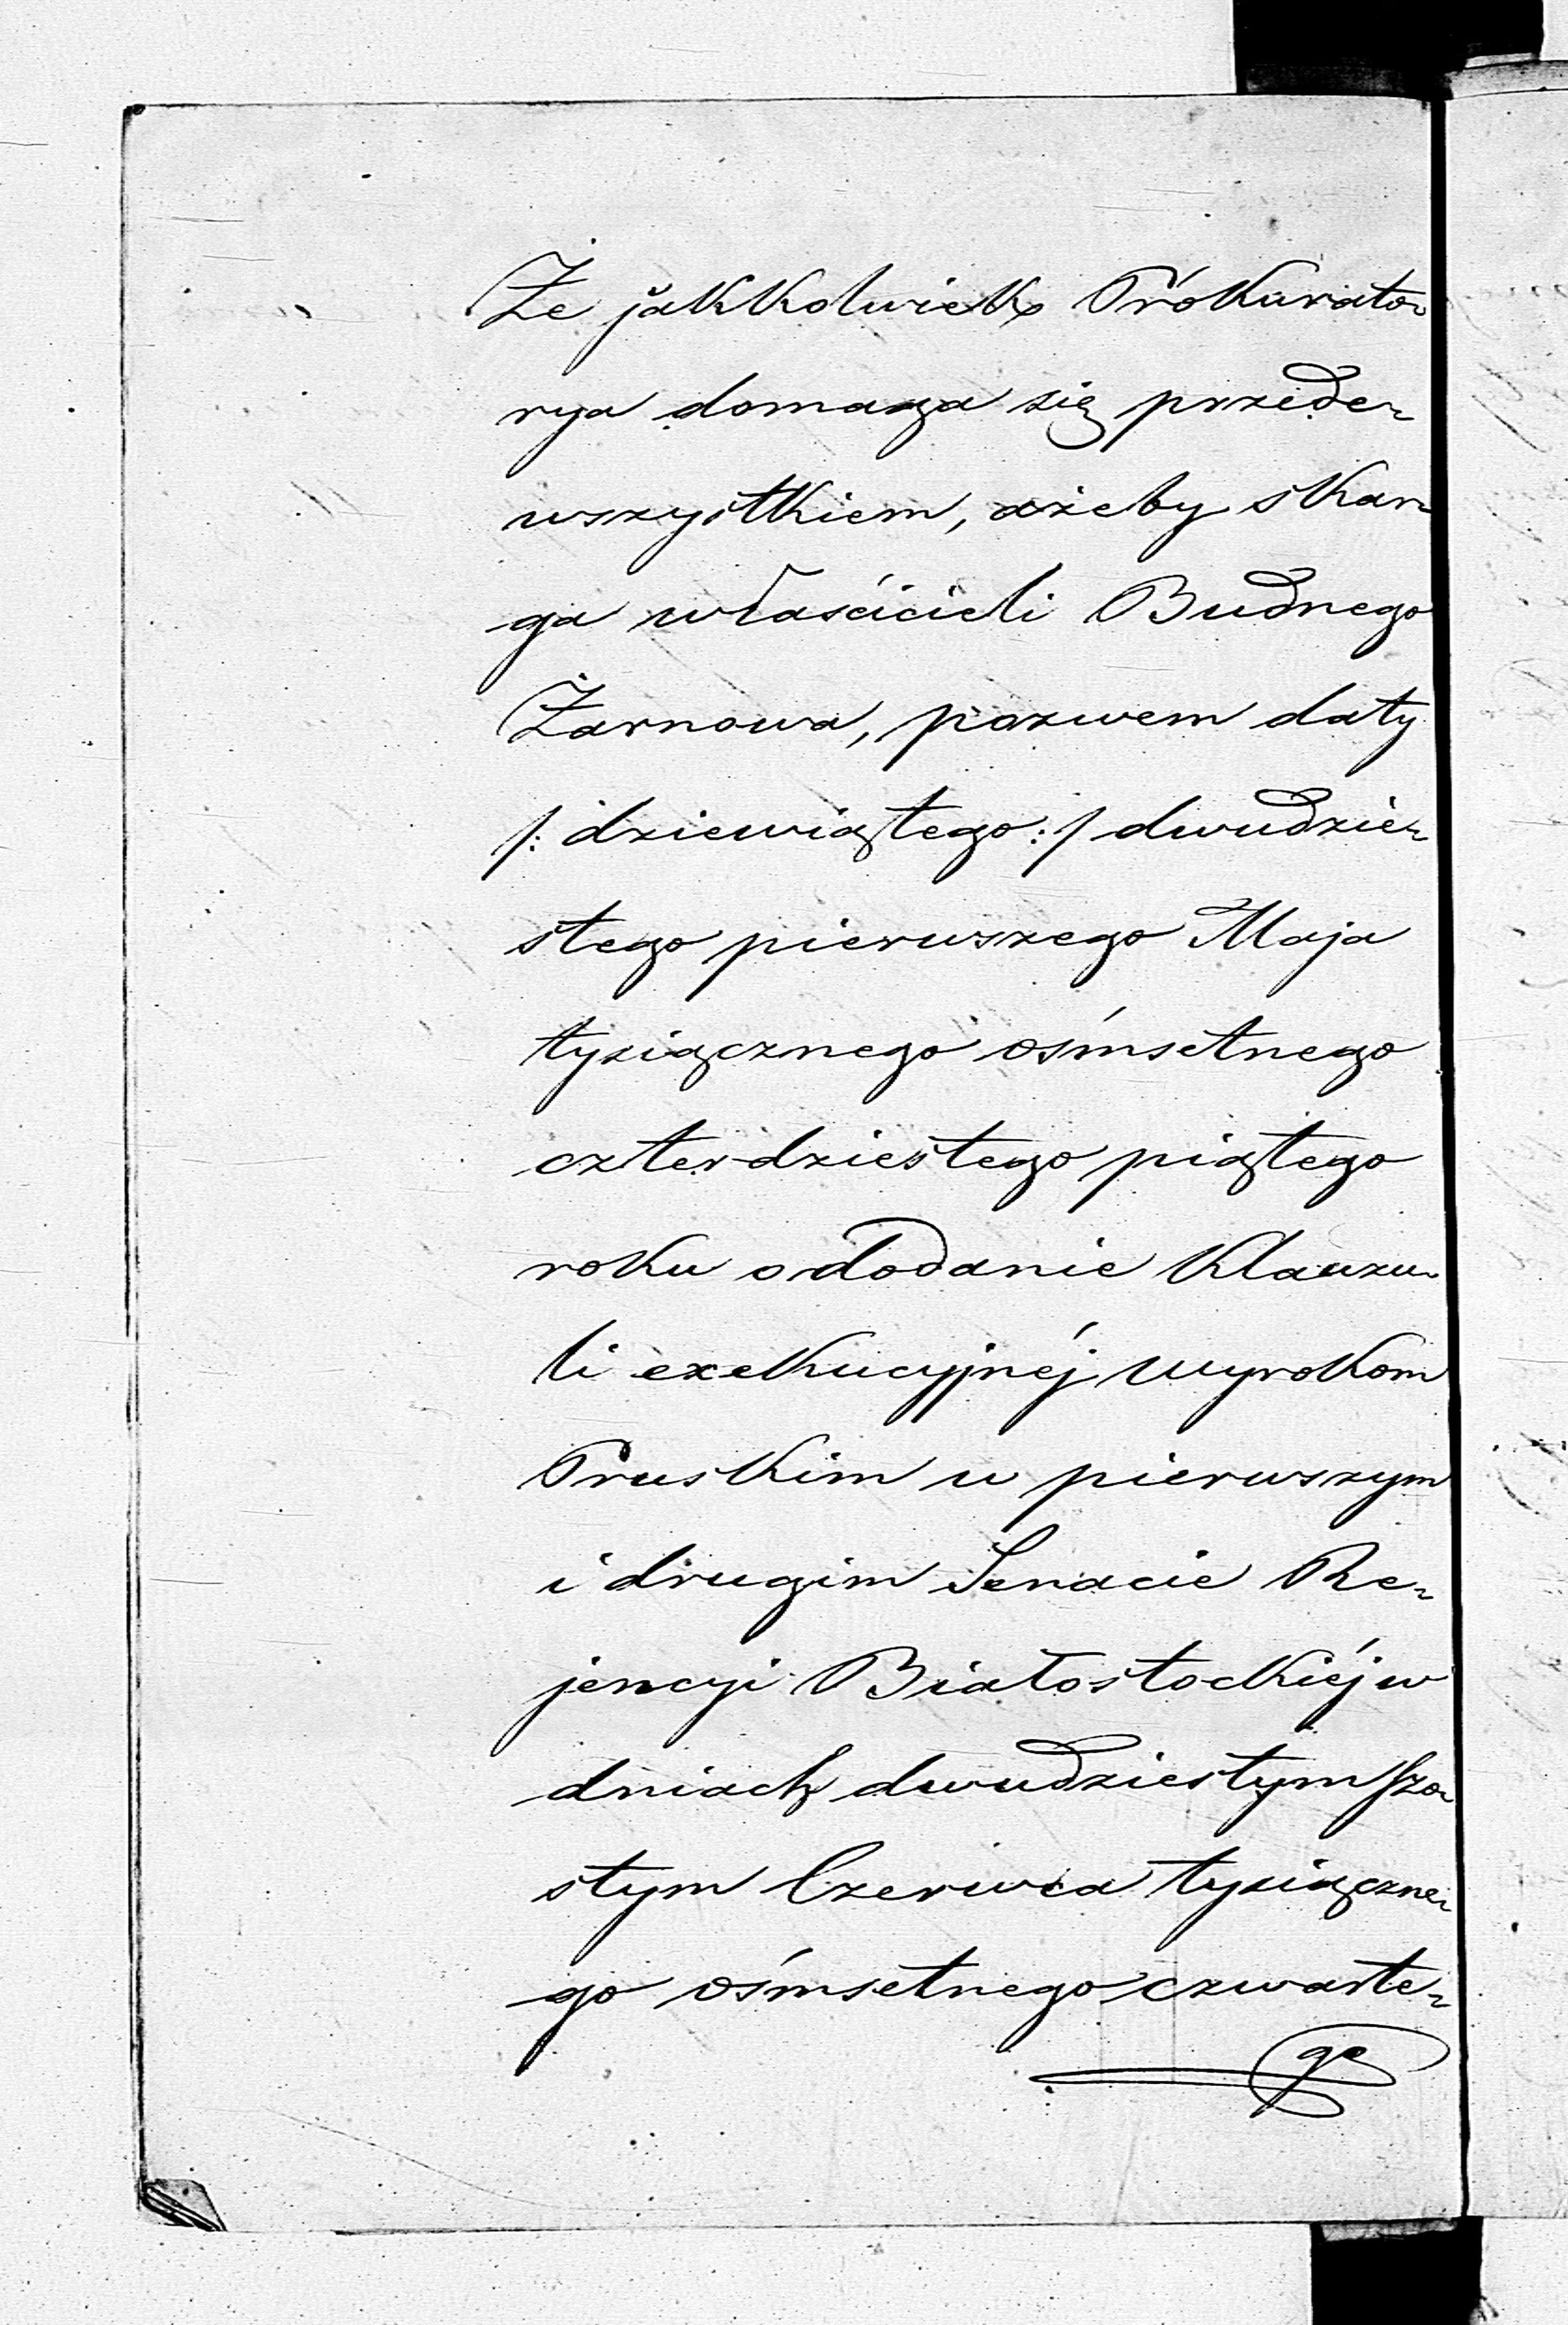 Że jakkolwiek Prokurato-
rya domaga się przede-
wszystkiem, ażeby skar-
ga właścicieli Budnego
Żarnowa, pozwem daty
/: dziewiątego :/ dwudzie-
stego pierwszego Maja
tysiącznego ośmsetnego
czterdziestego piątego
roku o dodanie klauzu-
li exekucyjnéj wyrokom
Pruskim w pierwszym
i drugim Senacie Re-
jencyi Białostockiéj w
dniach dwudziestym szó-
stym Czerwca tysiączne-
go ośmsetnego czwarte-
go